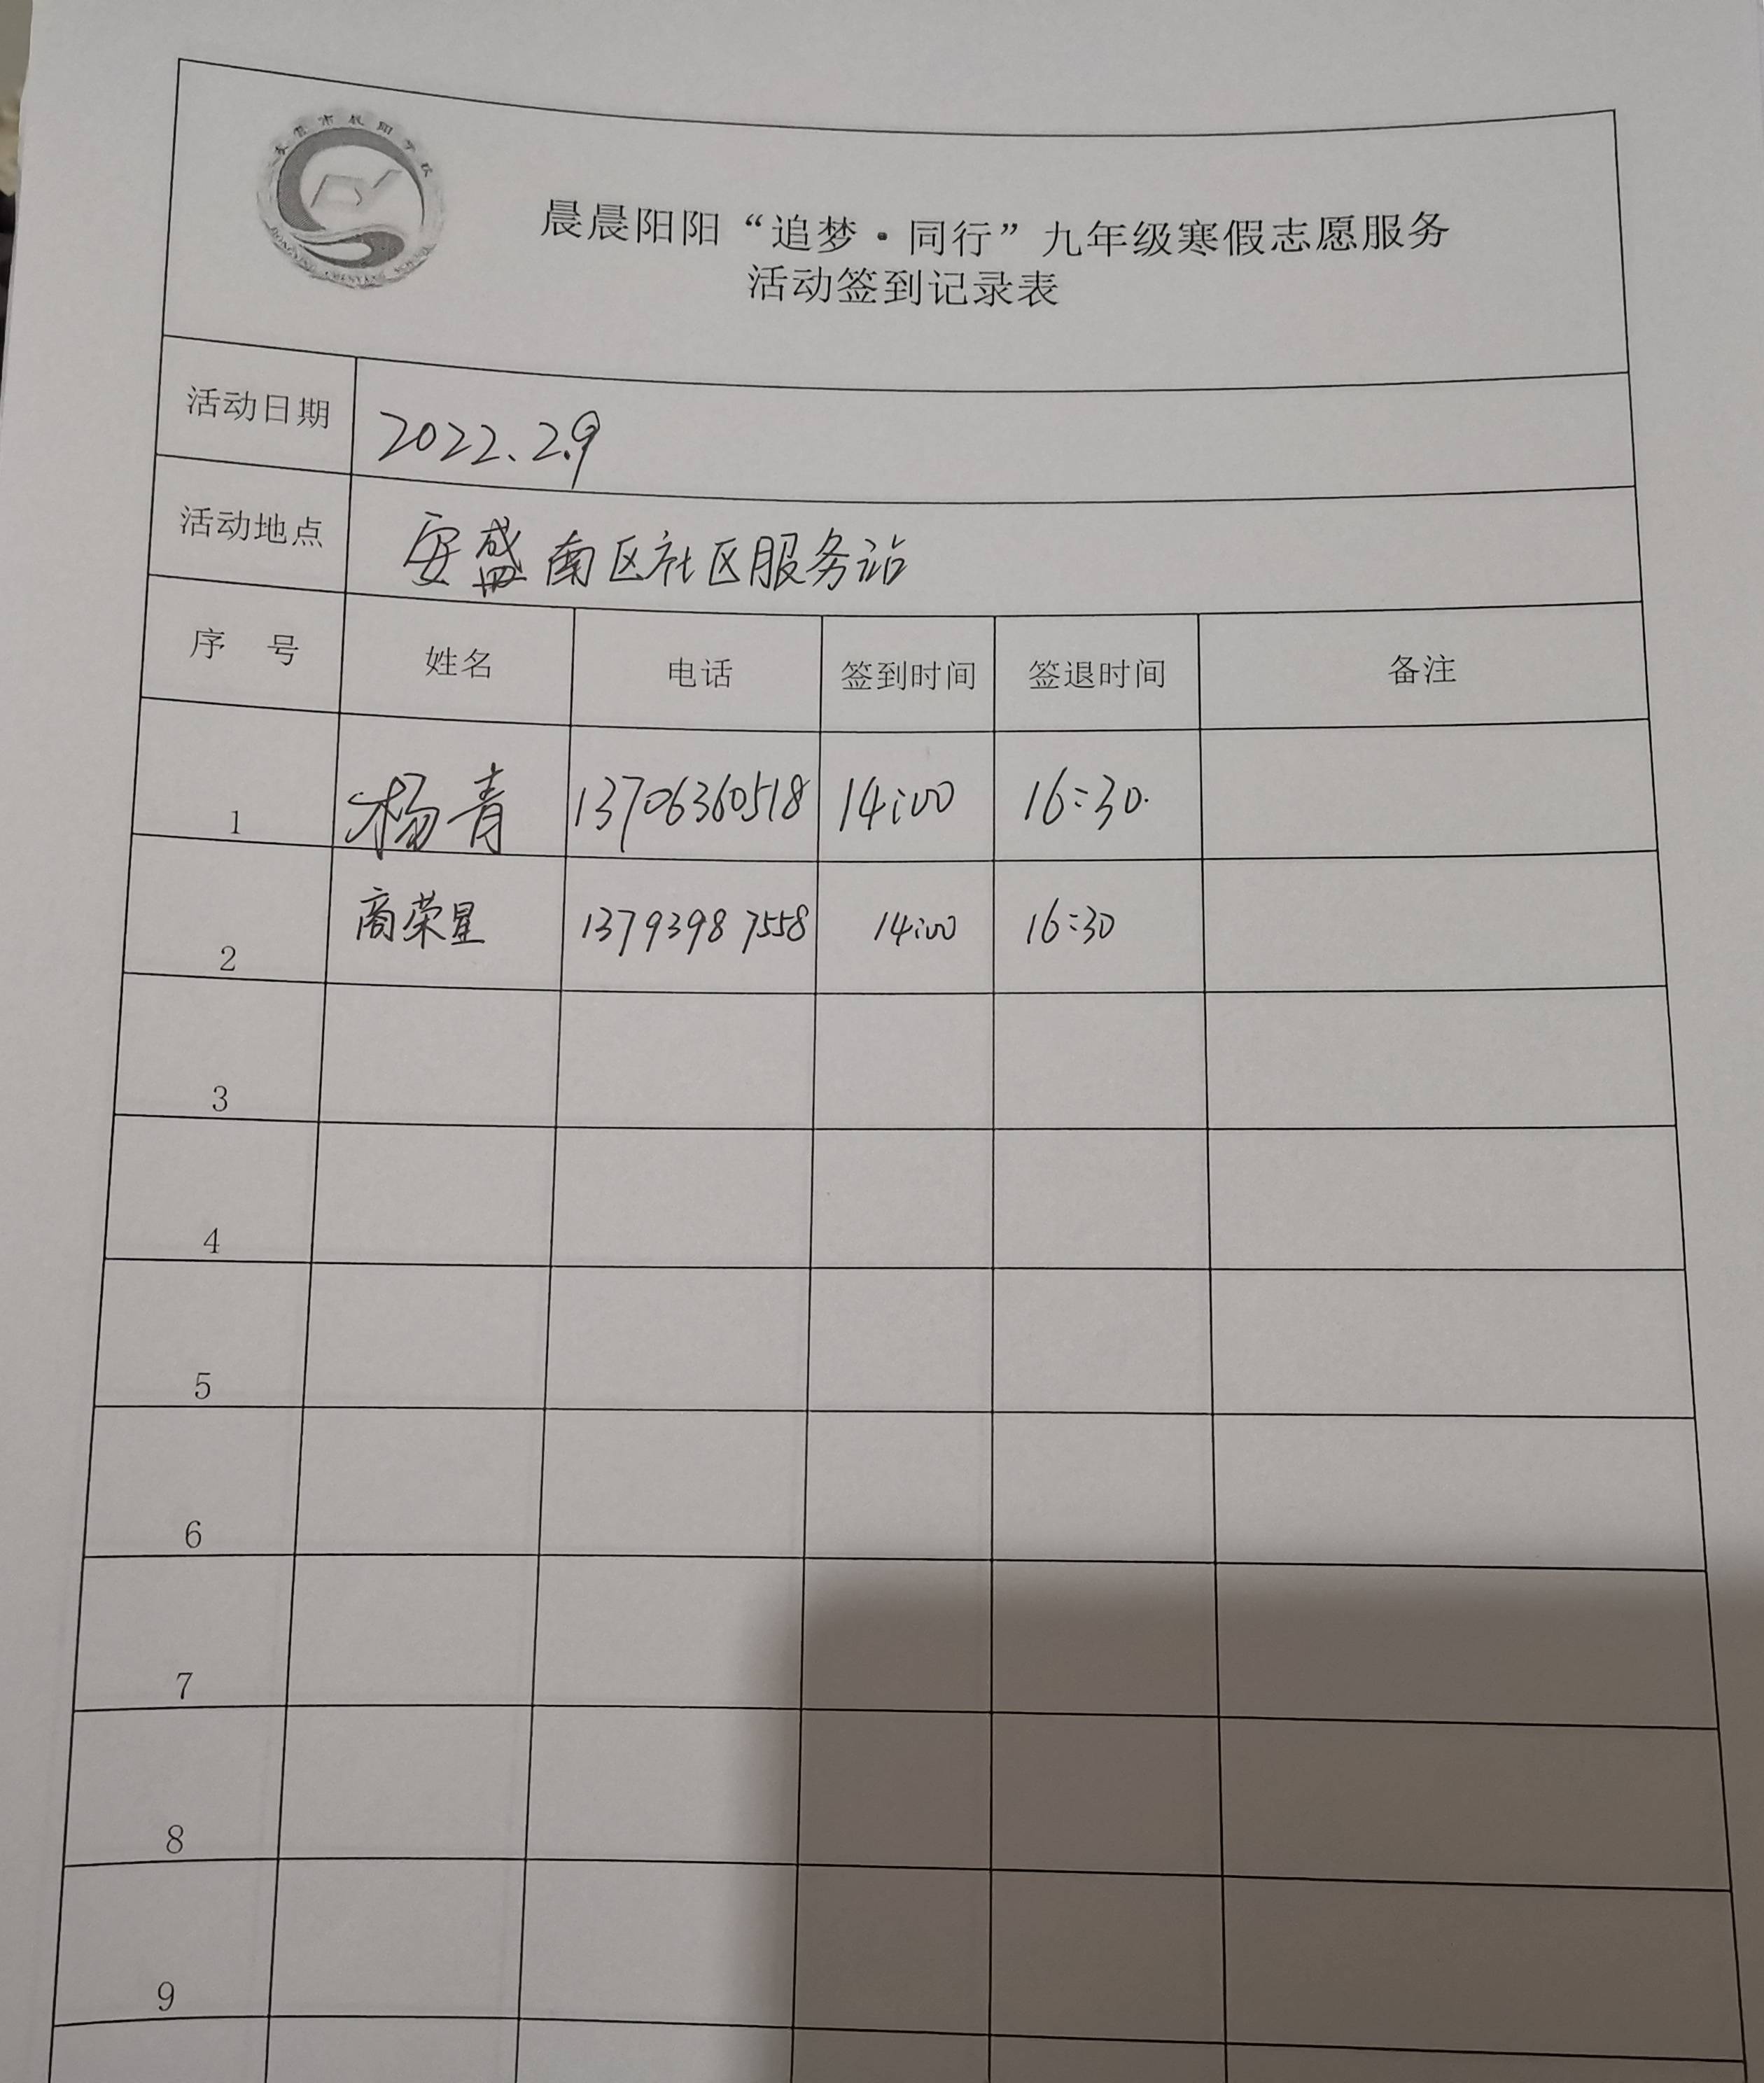 东营市晨阳学校
DONGYING CHENYANG SCHOOL
晨晨阳阳“追梦·同行”九年级寒假志愿服务
活动签到记录表
活动日期 2022.2.9
活动地点 安盛南区社区服务站
序 号 姓名 电话 签到时间 签退时间 备注
1 杨青 13706360518 14:00 16:30.
2 商荣星 13793987558 14:00 16:30
3
4
5
6
7
8
9